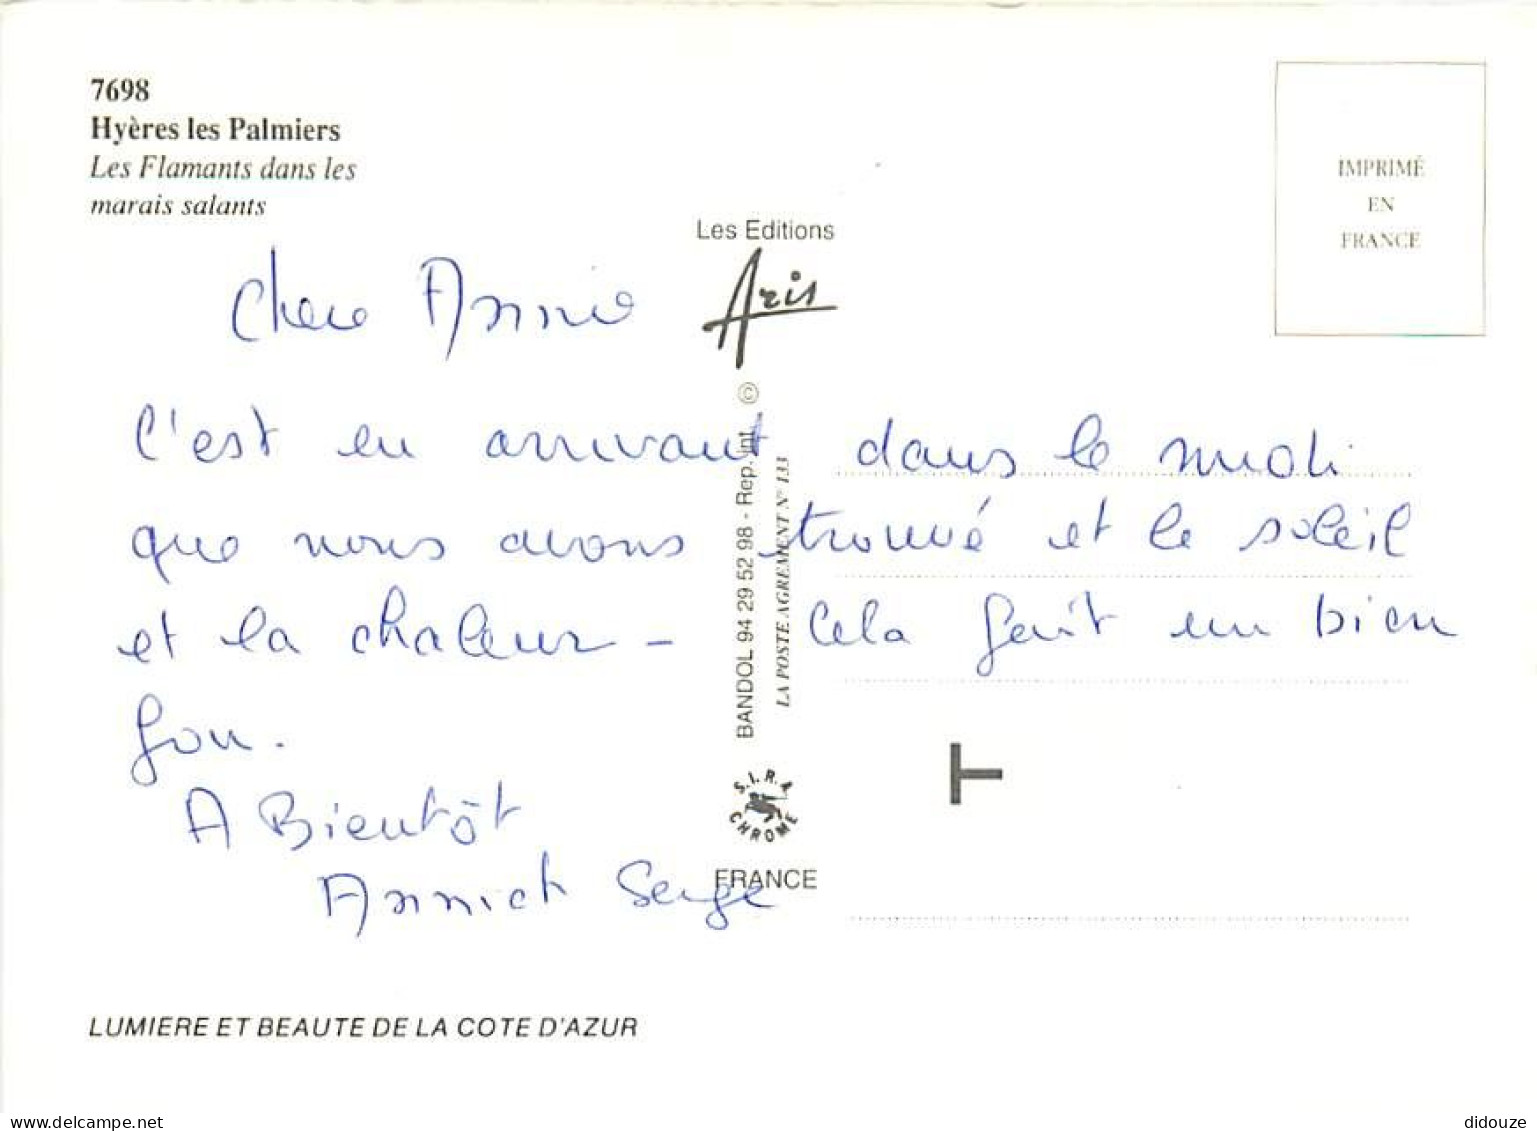 7698
Hyères les Palmiers
Les Flamants dans les
marais salants
IMPRIMÉ
EN
FRANCE
Les Editions
Aris
©
BANDOL 94 29 52 98 - Rep. Int.
LA POSTE AGREMENT N° 133
S.I.R.A
CHROME
FRANCE
T
Chere Annie
C'est en arrivant dans le midi
que nous avons trouvé et le soleil
et la chaleur - Cela fait un bien
fou.
A Bientôt
Annick Serge
LUMIERE ET BEAUTE DE LA COTE D'AZUR
www.delcampe.net
didouze